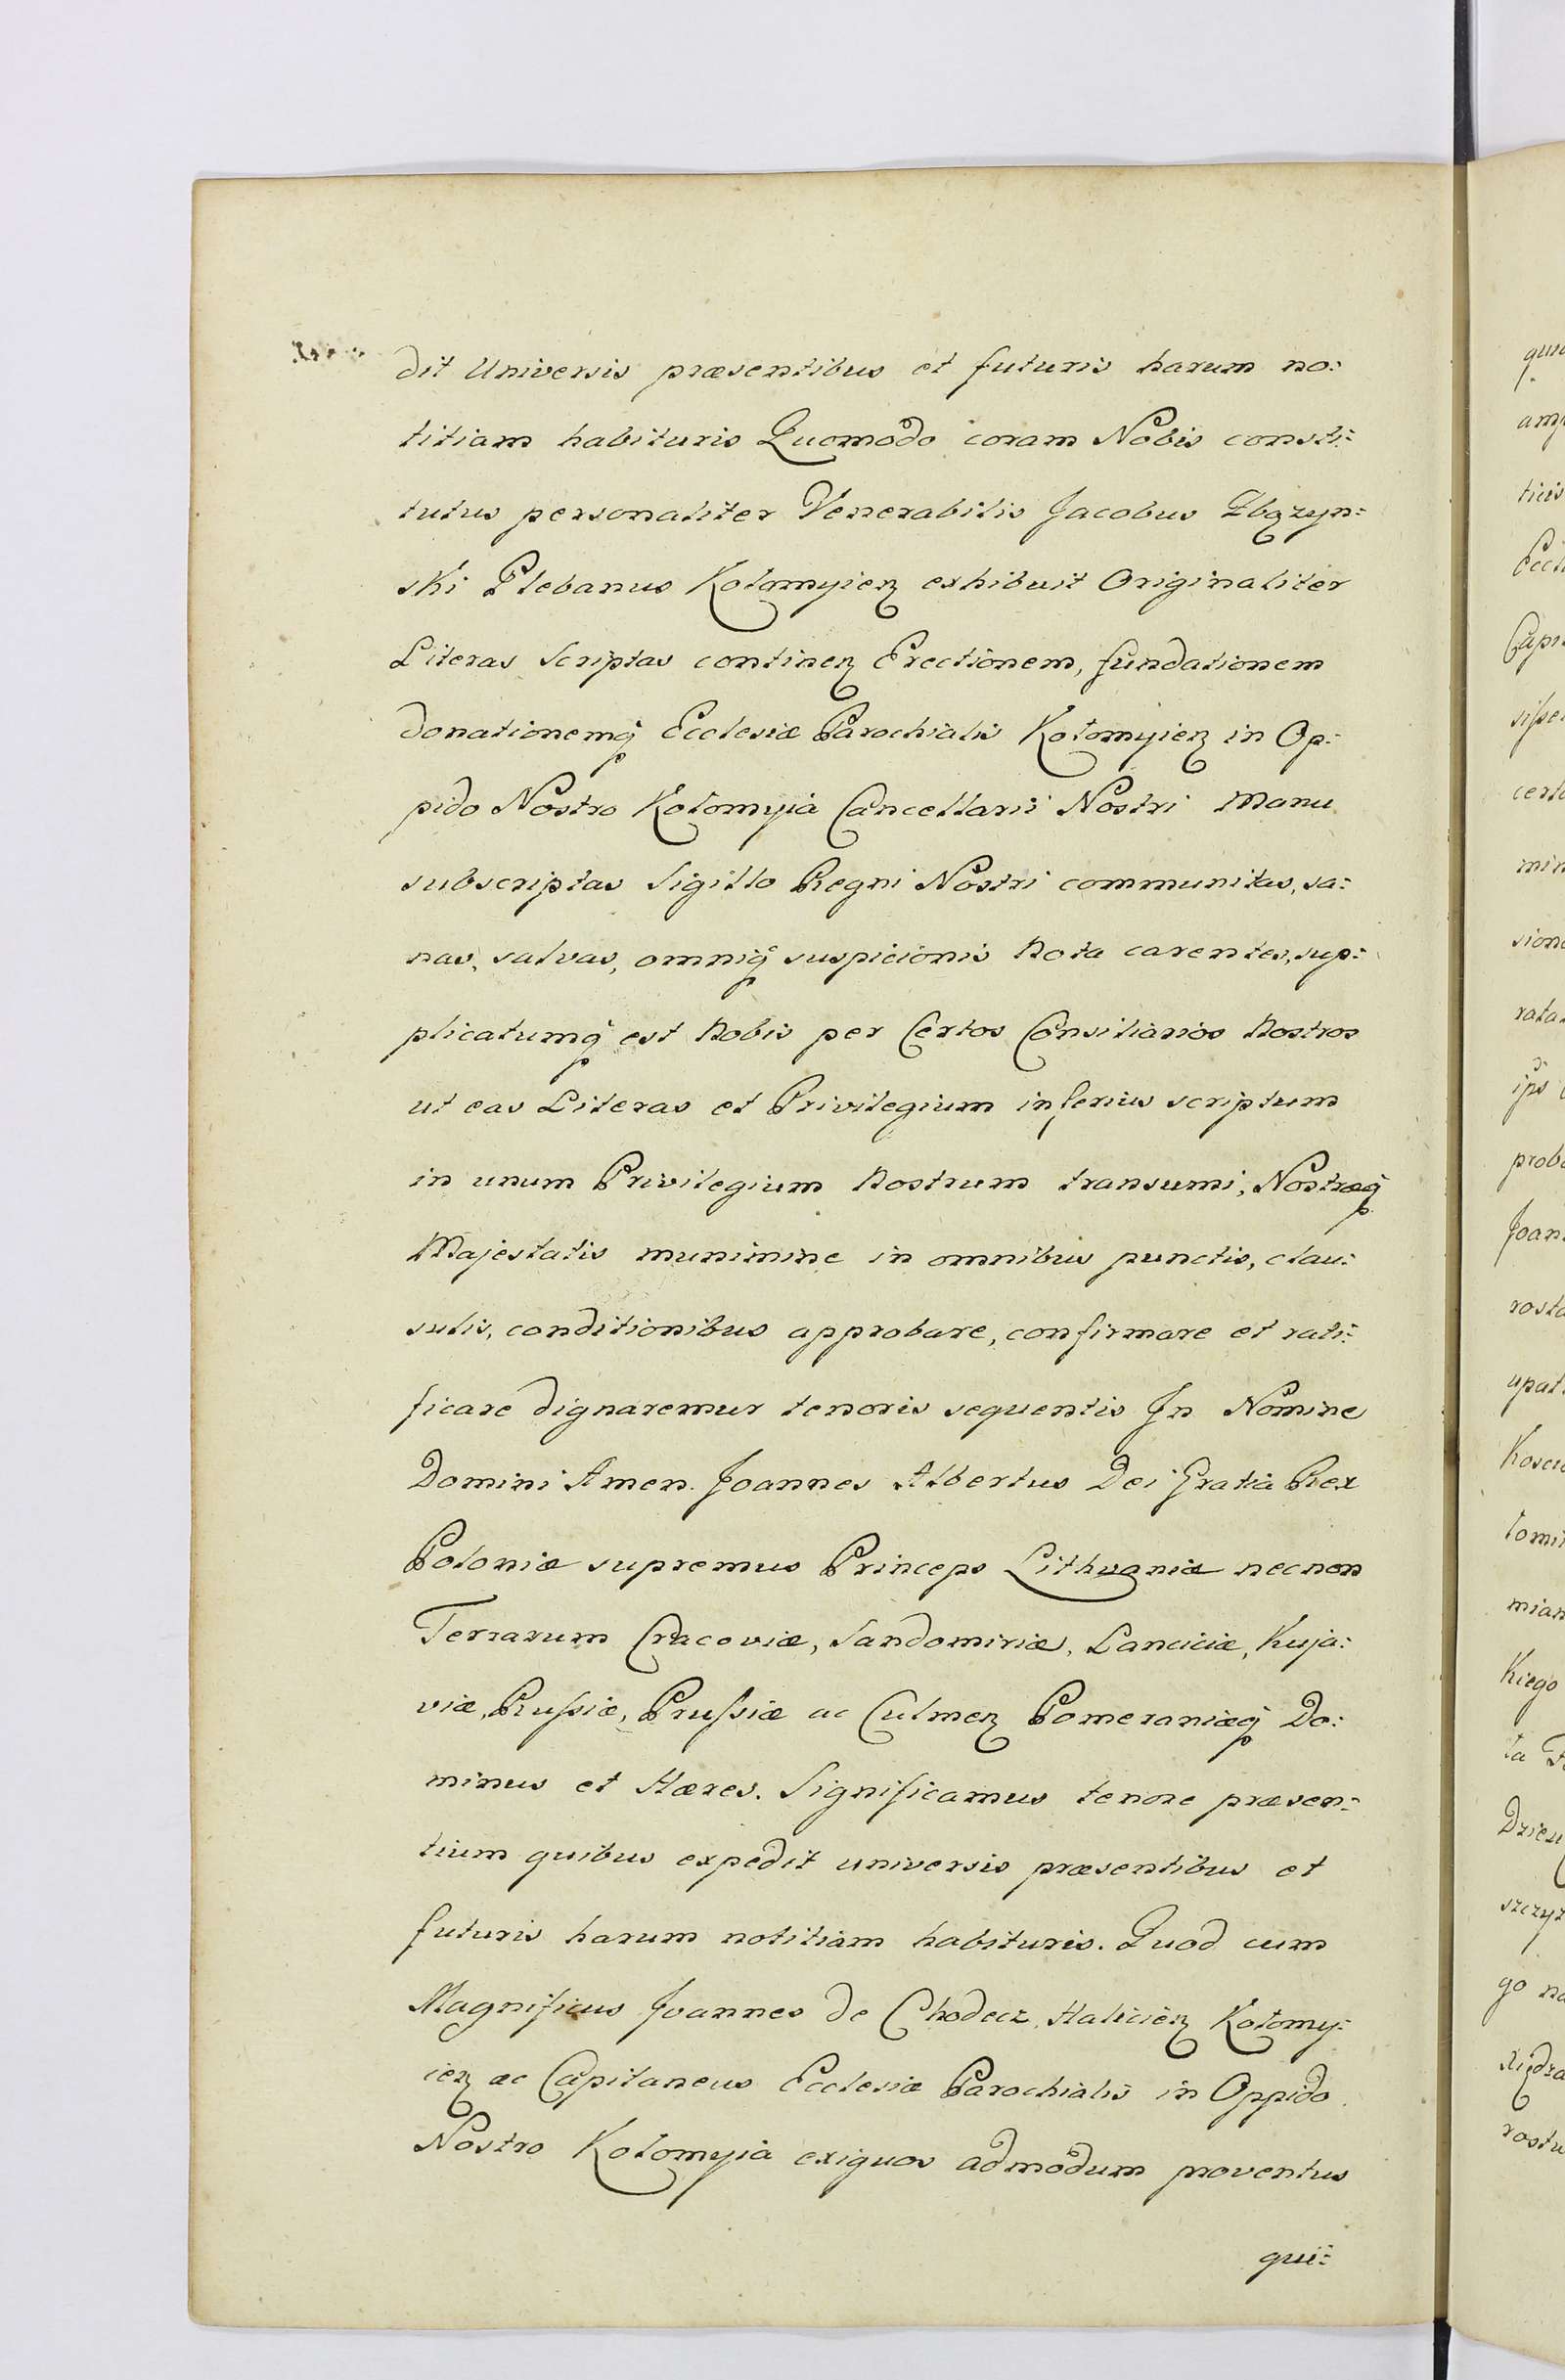 dit Universis præsentibus et futuris harum no:
titiam habituris Quomodo coram Nobis consti:
tutus personaliter Venerabilis Jacobus Zbązyn:
ski Plebanus Kołomyieȝ exhibuit Originaliter
Literas Scriptas contineȝ Erectionem, fundationem
donationemq̃ Ecclesiæ Parochialis Kołomyieȝ in Op:
pido Nostro Kołomyia Cancellarii Nostri Manu
subscriptas Sigillo Regni Nostri communitas, sa:
nas, salvas, omniq̃ suspicionis Nota carentes, sup:
plicatumq̃ est Nobis per Certos Consiliarios Nostros
ut eas Literas et Privilegium inferius scriptum
in unum Privilegium Nostrum transumi, Nostræq̃
Majestatis munimine in omnibus punctis, clau:
sulis, conditionibus approbare, confirmare et rati:
ficare dignaremur tenoris sequentis In Nomine
Domini Amen. Joannes Albertus Dei Gratia Rex
Poloniæ supremus Princeps Lithvaniæ necnon
Terrarum Cracoviæ, Sandomiriæ, Lanciciæ, Kuja:
viæ, Russiæ, Prussiæ ac Culmeȝ Pomeraniæq̃ Do:
minus et Hæres. Significamus tenore præsen:
tium quibus expedit universis præsentibus et
futuris harum notitiam habituris. Quod cum
Magnificus Joannes de Chodecz, Halicieȝ Kołomy:
ieȝ ac Capitaneus Ecclesiæ Parochialis in Oppido
Nostro Kołomyia exiguos admodum proventus
qui: